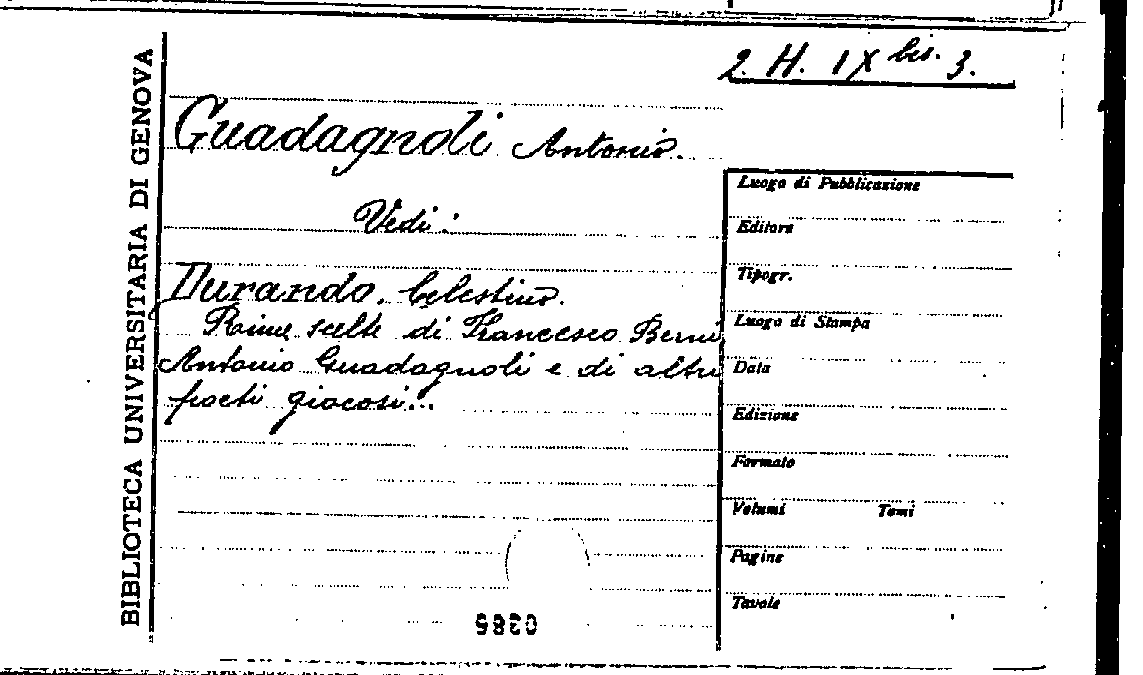 2. H. IX bis. 3.
BIBLIOTECA UNIVERSITARIA DI GENOVA
Guadagnoli Antonio.
Vedi:
Durando, Celestino.
Rime scelte di Francesco Berni,
Antonio Guadagnoli e di altri
poeti giocosi...
Luogo di Pubblicazione
Editore
Tipogr.
Luogo di Stampa
Data
Edizione
Formato
Volumi Tomi
Pagine
Tavole
0385